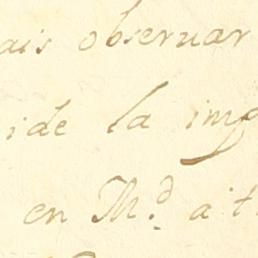 ais obseruar
ide la imp
en M.d a t